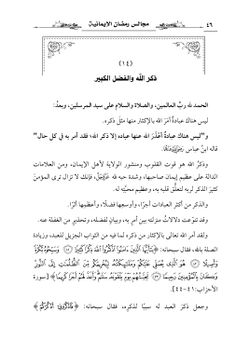 ٤٦ مجالس رمضان الإيمانية
(١٤)
ذكر الله والفضل الكبير
الحمد لله ربِّ العالمين، والصلاة والسلام على سيد المرسلين، وبعدُ:
ليس هناك عبادةٌ أمَرَ الله بالإكثار منها مثل ذكره.
و"ليس هناك عبادةٌ أعْذَرَ الله عنها عباده إلا ذكر الله؛ فقد أمر به في كل حال"
قاله ابنُ عباس
وذكرُ الله هو قوت القلوب ومنشور الولاية لأهل الإيمان، ومن العلامات
الدالة على عظيم إيمان صاحبها، وشدة حبه لله فإنك لا تزال ترى المؤمنَ
كثيرَ الذكر لربه لتعلُّق قلبه به، وعظيم محبَّتِه له.
والذكر من أكثر العبادات أجرًا، وأوسعها فضلًا، وأعظمها أثرًا.
وقد تنوَّعت دلالاتُ منزلته بين أمرٍ به، وبيانٍ لفضله، وتحذيرٍ من الغفلة عنه.
ولقد أمر الله تعالى بالإكثار من ذكره لما فيه من الثواب الجزيل للعبد، وزيادة
الصلة بالله، فقال سبحانه: ﴿يَٰٓأَيُّهَا ٱلَّذِينَ ءَامَنُوا۟ ٱذْكُرُوا۟ ٱللَّهَ ذِكْرًا كَثِيرًا ۝ وَسَبِّحُوهُ بُكْرَةً
وَأَصِيلًا ۝ هُوَ ٱلَّذِى يُصَلِّى عَلَيْكُمْ وَمَلَٰٓئِكَتُهُۥ لِيُخْرِجَكُم مِّنَ ٱلظُّلُمَٰتِ إِلَى ٱلنُّورِ
وَكَانَ بِٱلْمُؤْمِنِينَ رَحِيمًا ۝ تَحِيَّتُهُمْ يَوْمَ يَلْقَوْنَهُۥ سَلَٰمٌ وَأَعَدَّ لَهُمْ أَجْرًا كَرِيمًا﴾
[الأحزاب: ٤١-٤٤].
وجعل ذكرَ العبد له سببًا لذكره، فقال سبحانه: ﴿فَٱذْكُرُونِىٓ أَذْكُرْكُمْ﴾